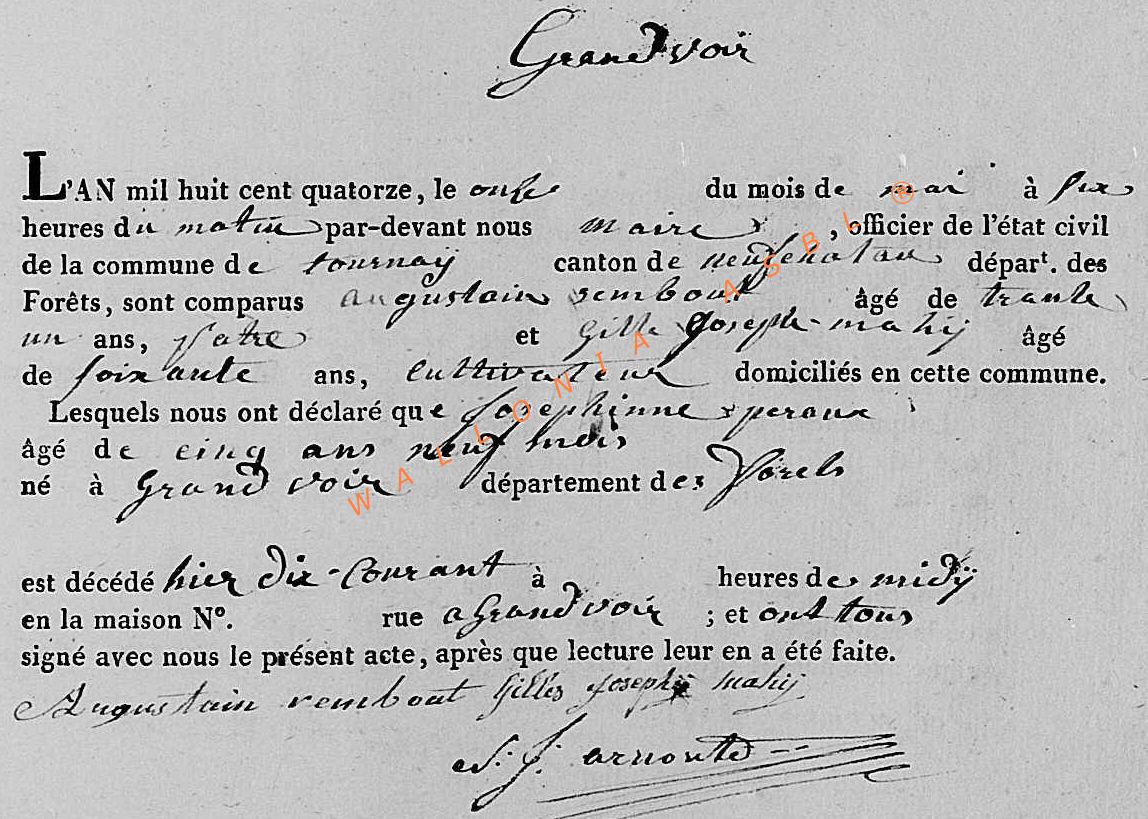 Grandvoir
L'AN mil huit cent quatorze, le onse du mois de mai à six
heures du matin par-devant nous maire, officier de l'état civil
de la commune de tournaÿ canton de neufchatau départ. des
Forêts, sont comparus augustain rembout âgé de trante
un ans, patre et Gille Joseph mahÿ âgé
de soixante ans, Culttivateur domiciliés en cette commune.
Lesquels nous ont déclaré que Josephinne peraux
âgé de cinq ans neuf mois
né à Grand voir département des forels
est décédé hier dix Courant à heures de midÿ
en la maison N°. rue a Grandvoir ; et ont tous
signé avec nous le présent acte, après que lecture leur en a été faite.
Augustain rembout Gilles Joseph mahÿ
J: arnould
WALLONIA ASBL ®